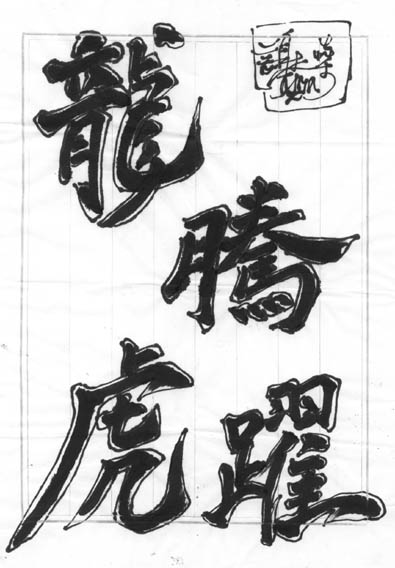 龍
騰
虎
躍